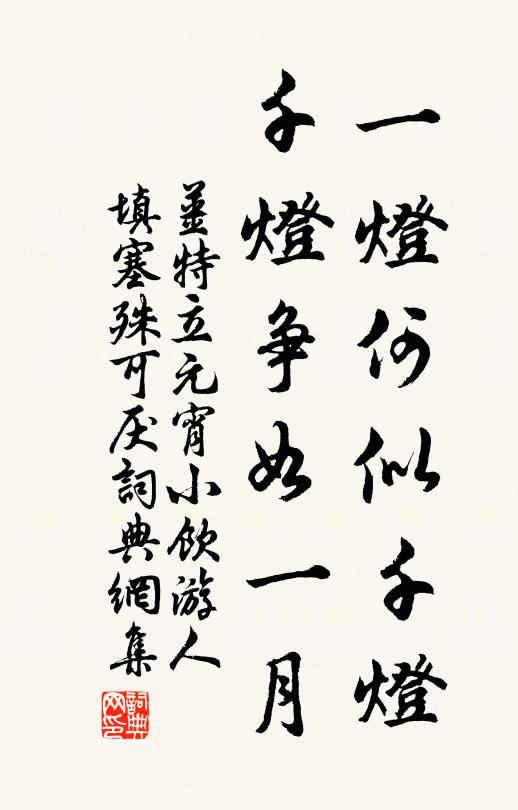 一燈何似千燈
千燈争如一月
姜特立元宵小飲游人
填塞殊可厌詞典網集
詞典网印